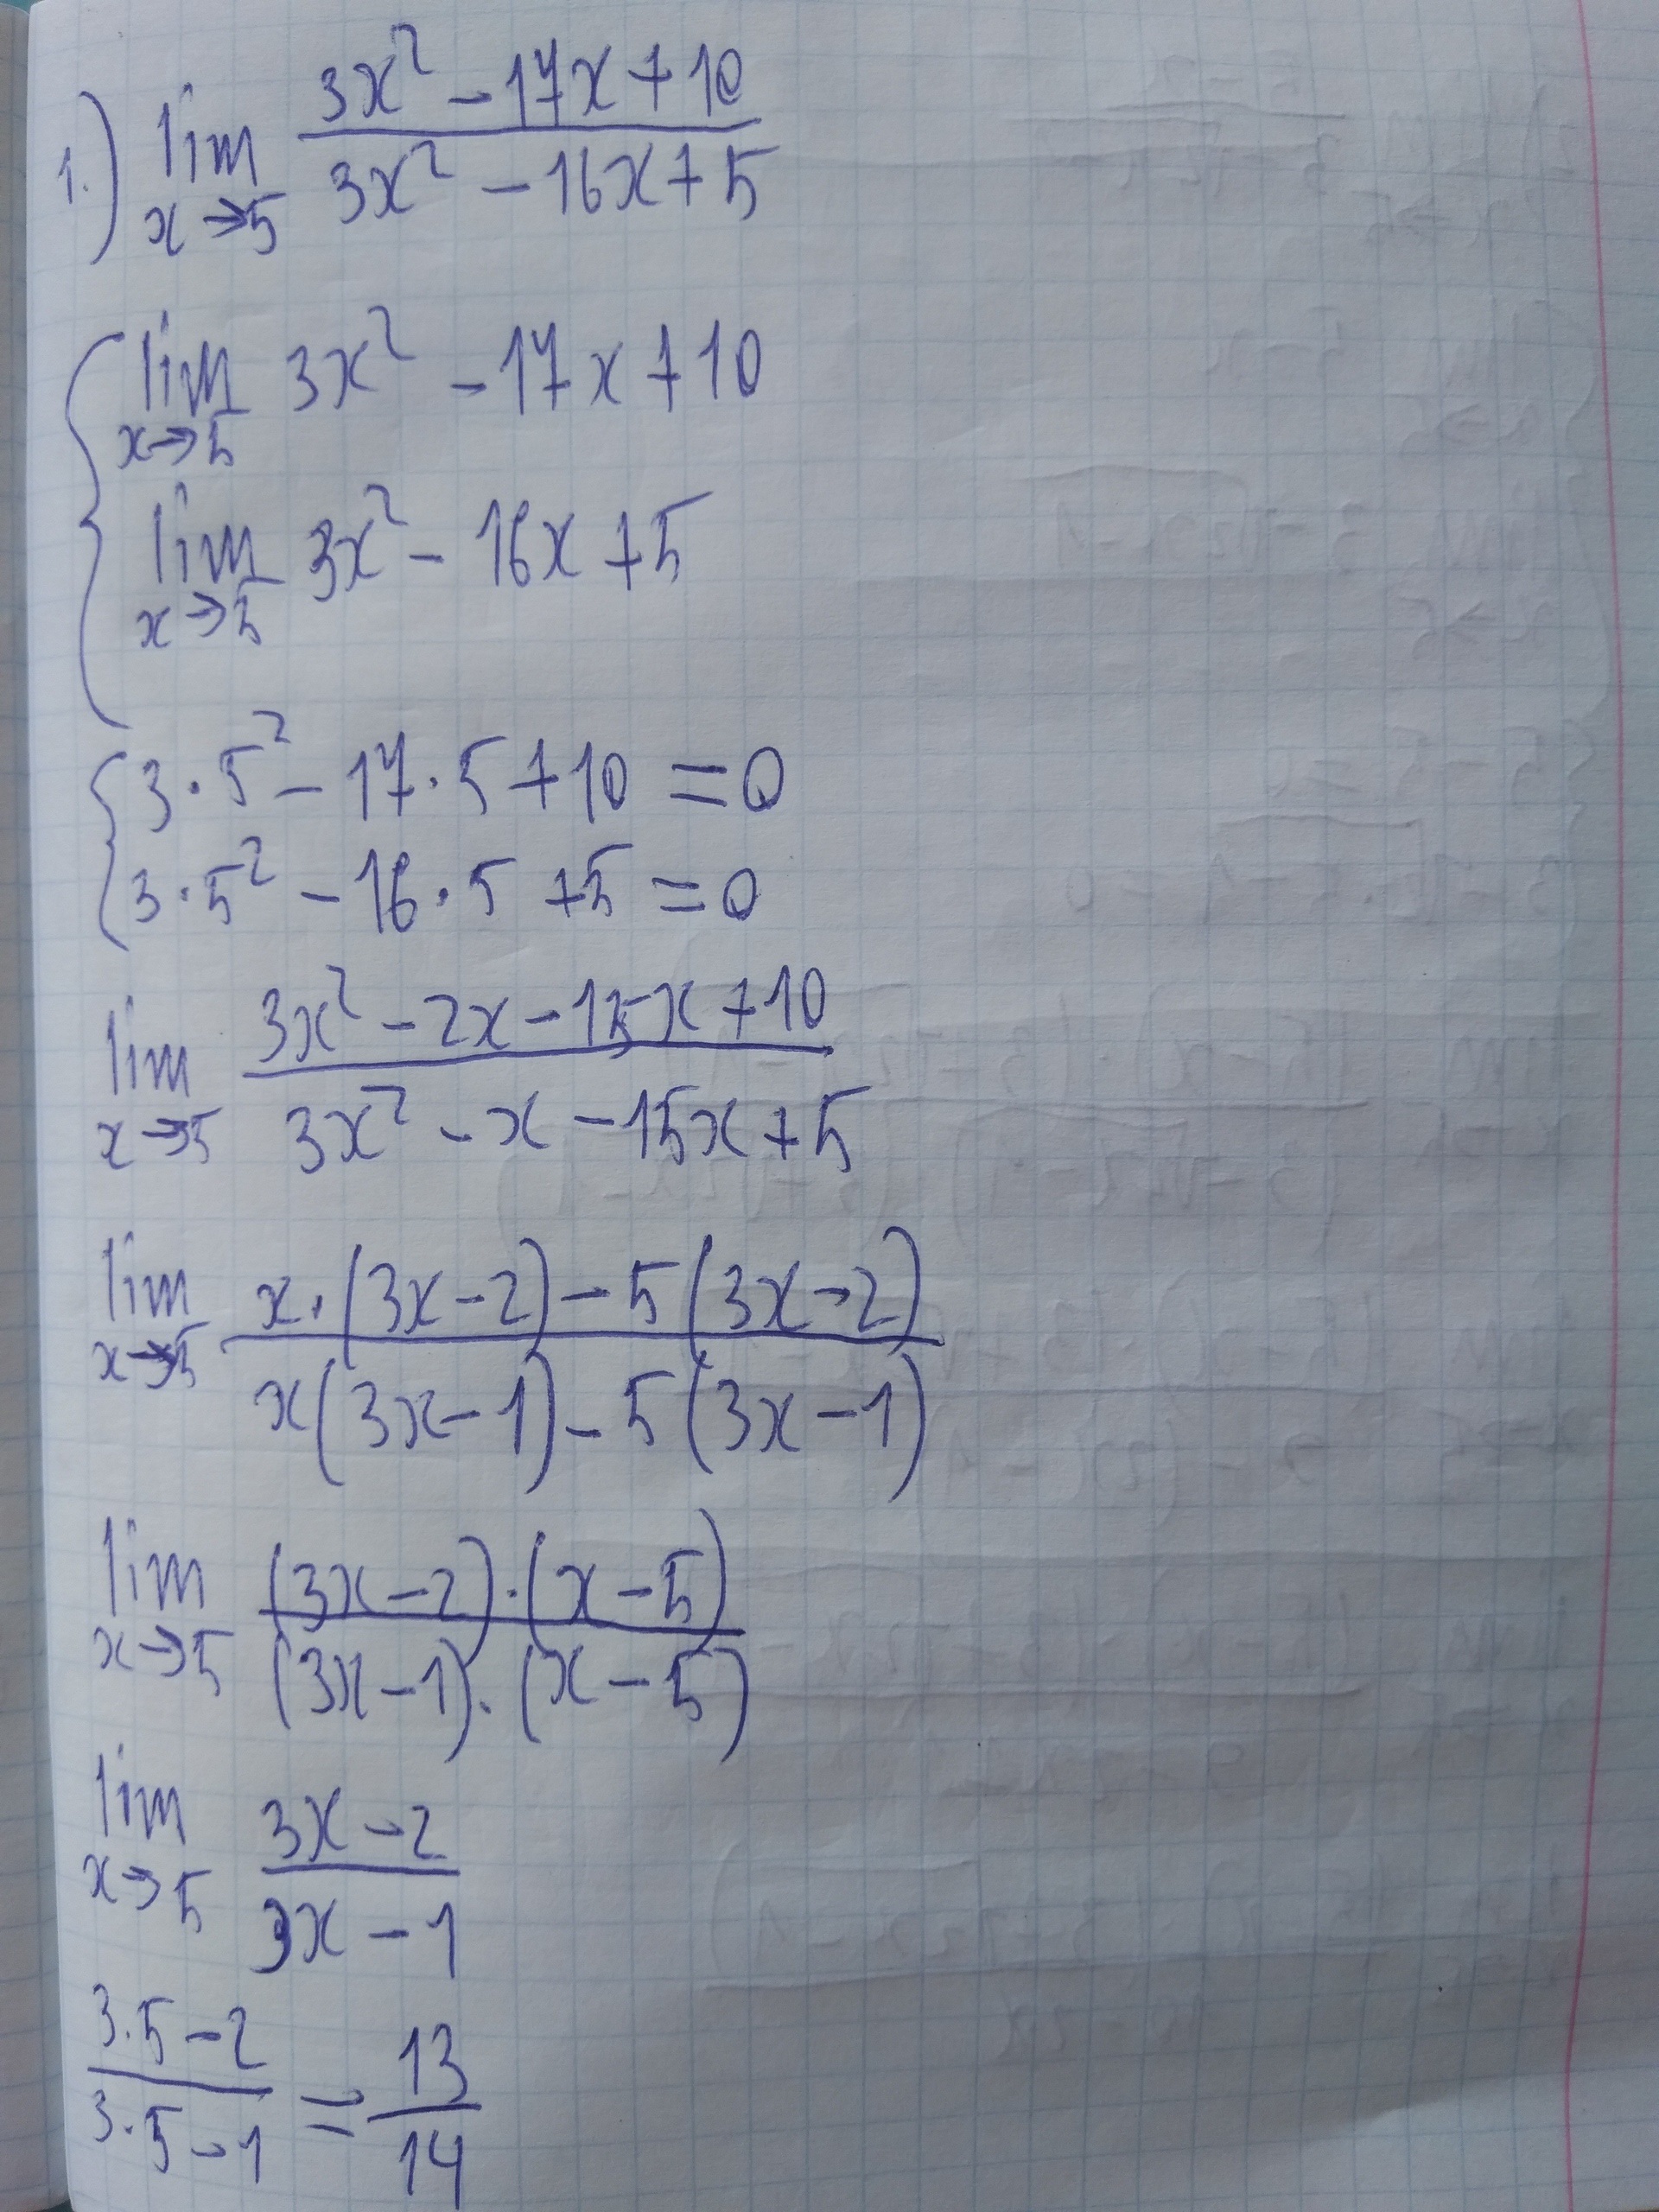 1.) lim x→5 (3x² - 17x + 10) / (3x² - 16x + 5)
{ lim x→5 3x² - 17x + 10
lim x→5 3x² - 16x + 5
{ 3·5² - 17·5 + 10 = 0
3·5² - 16·5 + 5 = 0
lim x→5 (3x² - 2x - 15x + 10) / (3x² - x - 15x + 5)
lim x→5 (x·(3x-2) - 5(3x-2)) / (x(3x-1) - 5(3x-1))
lim x→5 ((3x-2)·(x-5)) / ((3x-1)·(x-5))
lim x→5 (3x-2) / (3x-1)
(3·5-2) / (3·5-1) = 13/14